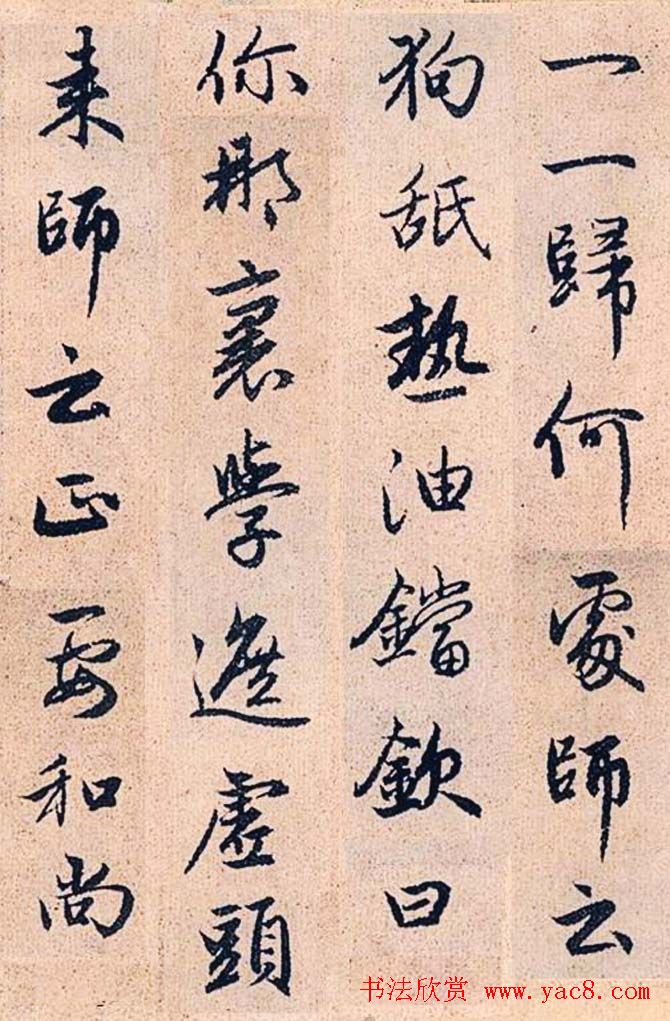 一一歸何處師云
狗舐熱油鐺欽曰
你那裏學遮虛頭
来師云正要和尚
书法欣赏 www.yac8.com